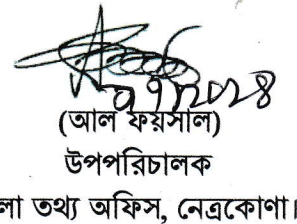 (আল ফয়সাল)
উপপরিচালক
লা তথ্য অফিস, নেত্রকোণা।